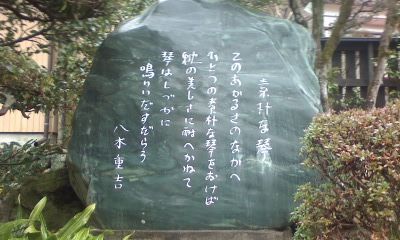 素朴な琴
このあかるさのなかへ
ひとつの素朴な琴をおけば
秋の美しさに耐へかねて
琴はしづかに
鳴りいだすだらう
八木重吉